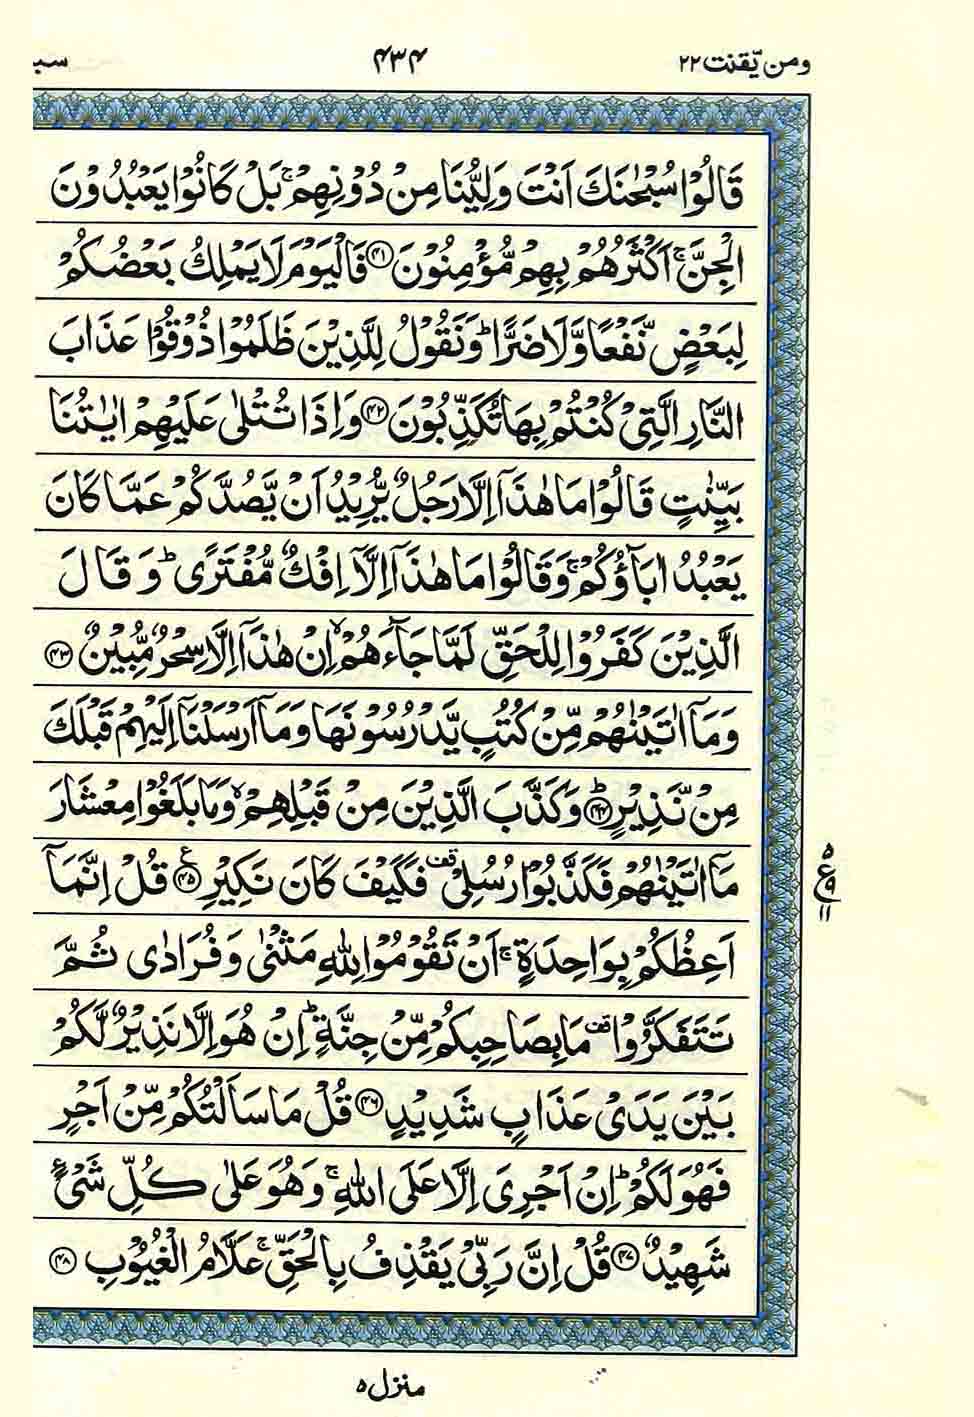 ومن یّقنت ۲۲
۴۳۴
سبا
قَالُوْا سُبْحٰنَكَ اَنْتَ وَلِیُّنَا مِنْ دُوْنِهِمْ ۚ بَلْ كَانُوْا یَعْبُدُوْنَ
الْجِنَّ ۚ اَكْثَرُهُمْ بِهِمْ مُّؤْمِنُوْنَ ﴿۴۱﴾ فَالْیَوْمَ لَا یَمْلِكُ بَعْضُكُمْ
لِبَعْضٍ نَّفْعًا وَّلَا ضَرًّا ؕ وَنَقُوْلُ لِلَّذِیْنَ ظَلَمُوْا ذُوْقُوْا عَذَابَ
النَّارِ الَّتِیْ كُنْتُمْ بِهَا تُكَذِّبُوْنَ ﴿۴۲﴾ وَاِذَا تُتْلٰی عَلَیْهِمْ اٰیٰتُنَا
بَیِّنٰتٍ قَالُوْا مَا هٰذَاۤ اِلَّا رَجُلٌ یُّرِیْدُ اَنْ یَّصُدَّكُمْ عَمَّا كَانَ
یَعْبُدُ اٰبَآؤُكُمْ ۚ وَقَالُوْا مَا هٰذَاۤ اِلَّاۤ اِفْكٌ مُّفْتَرًی ؕ وَقَالَ
الَّذِیْنَ كَفَرُوْا لِلْحَقِّ لَمَّا جَآءَهُمْ ۙ اِنْ هٰذَاۤ اِلَّا سِحْرٌ مُّبِیْنٌ ﴿۴۳﴾
وَمَاۤ اٰتَیْنٰهُمْ مِّنْ كُتُبٍ یَّدْرُسُوْنَهَا وَمَاۤ اَرْسَلْنَاۤ اِلَیْهِمْ قَبْلَكَ
مِنْ نَّذِیْرٍ ﴿۴۴﴾ؕ وَكَذَّبَ الَّذِیْنَ مِنْ قَبْلِهِمْ ۙ وَمَا بَلَغُوْا مِعْشَارَ
مَاۤ اٰتَیْنٰهُمْ فَكَذَّبُوْا رُسُلِیْ قف فَكَیْفَ كَانَ نَكِیْرِ ﴿۴۵﴾ ع قُلْ اِنَّمَاۤ
اَعِظُكُمْ بِوَاحِدَةٍ ۚ اَنْ تَقُوْمُوْا لِلّٰهِ مَثْنٰی وَفُرَادٰی ثُمَّ
تَتَفَكَّرُوْا قف مَا بِصَاحِبِكُمْ مِّنْ جِنَّةٍ ؕ اِنْ هُوَ اِلَّا نَذِیْرٌ لَّكُمْ
بَیْنَ یَدَیْ عَذَابٍ شَدِیْدٍ ﴿۴۶﴾ قُلْ مَا سَاَلْتُكُمْ مِّنْ اَجْرٍ
فَهُوَ لَكُمْ ؕ اِنْ اَجْرِیَ اِلَّا عَلَی اللّٰهِ ۚ وَهُوَ عَلٰی كُلِّ شَیْءٍ
شَهِیْدٌ ﴿۴۷﴾ قُلْ اِنَّ رَبِّیْ یَقْذِفُ بِالْحَقِّ ۚ عَلَّامُ الْغُیُوْبِ ﴿۴۸﴾
۵
ع ۹
۱۱
منزل ۵